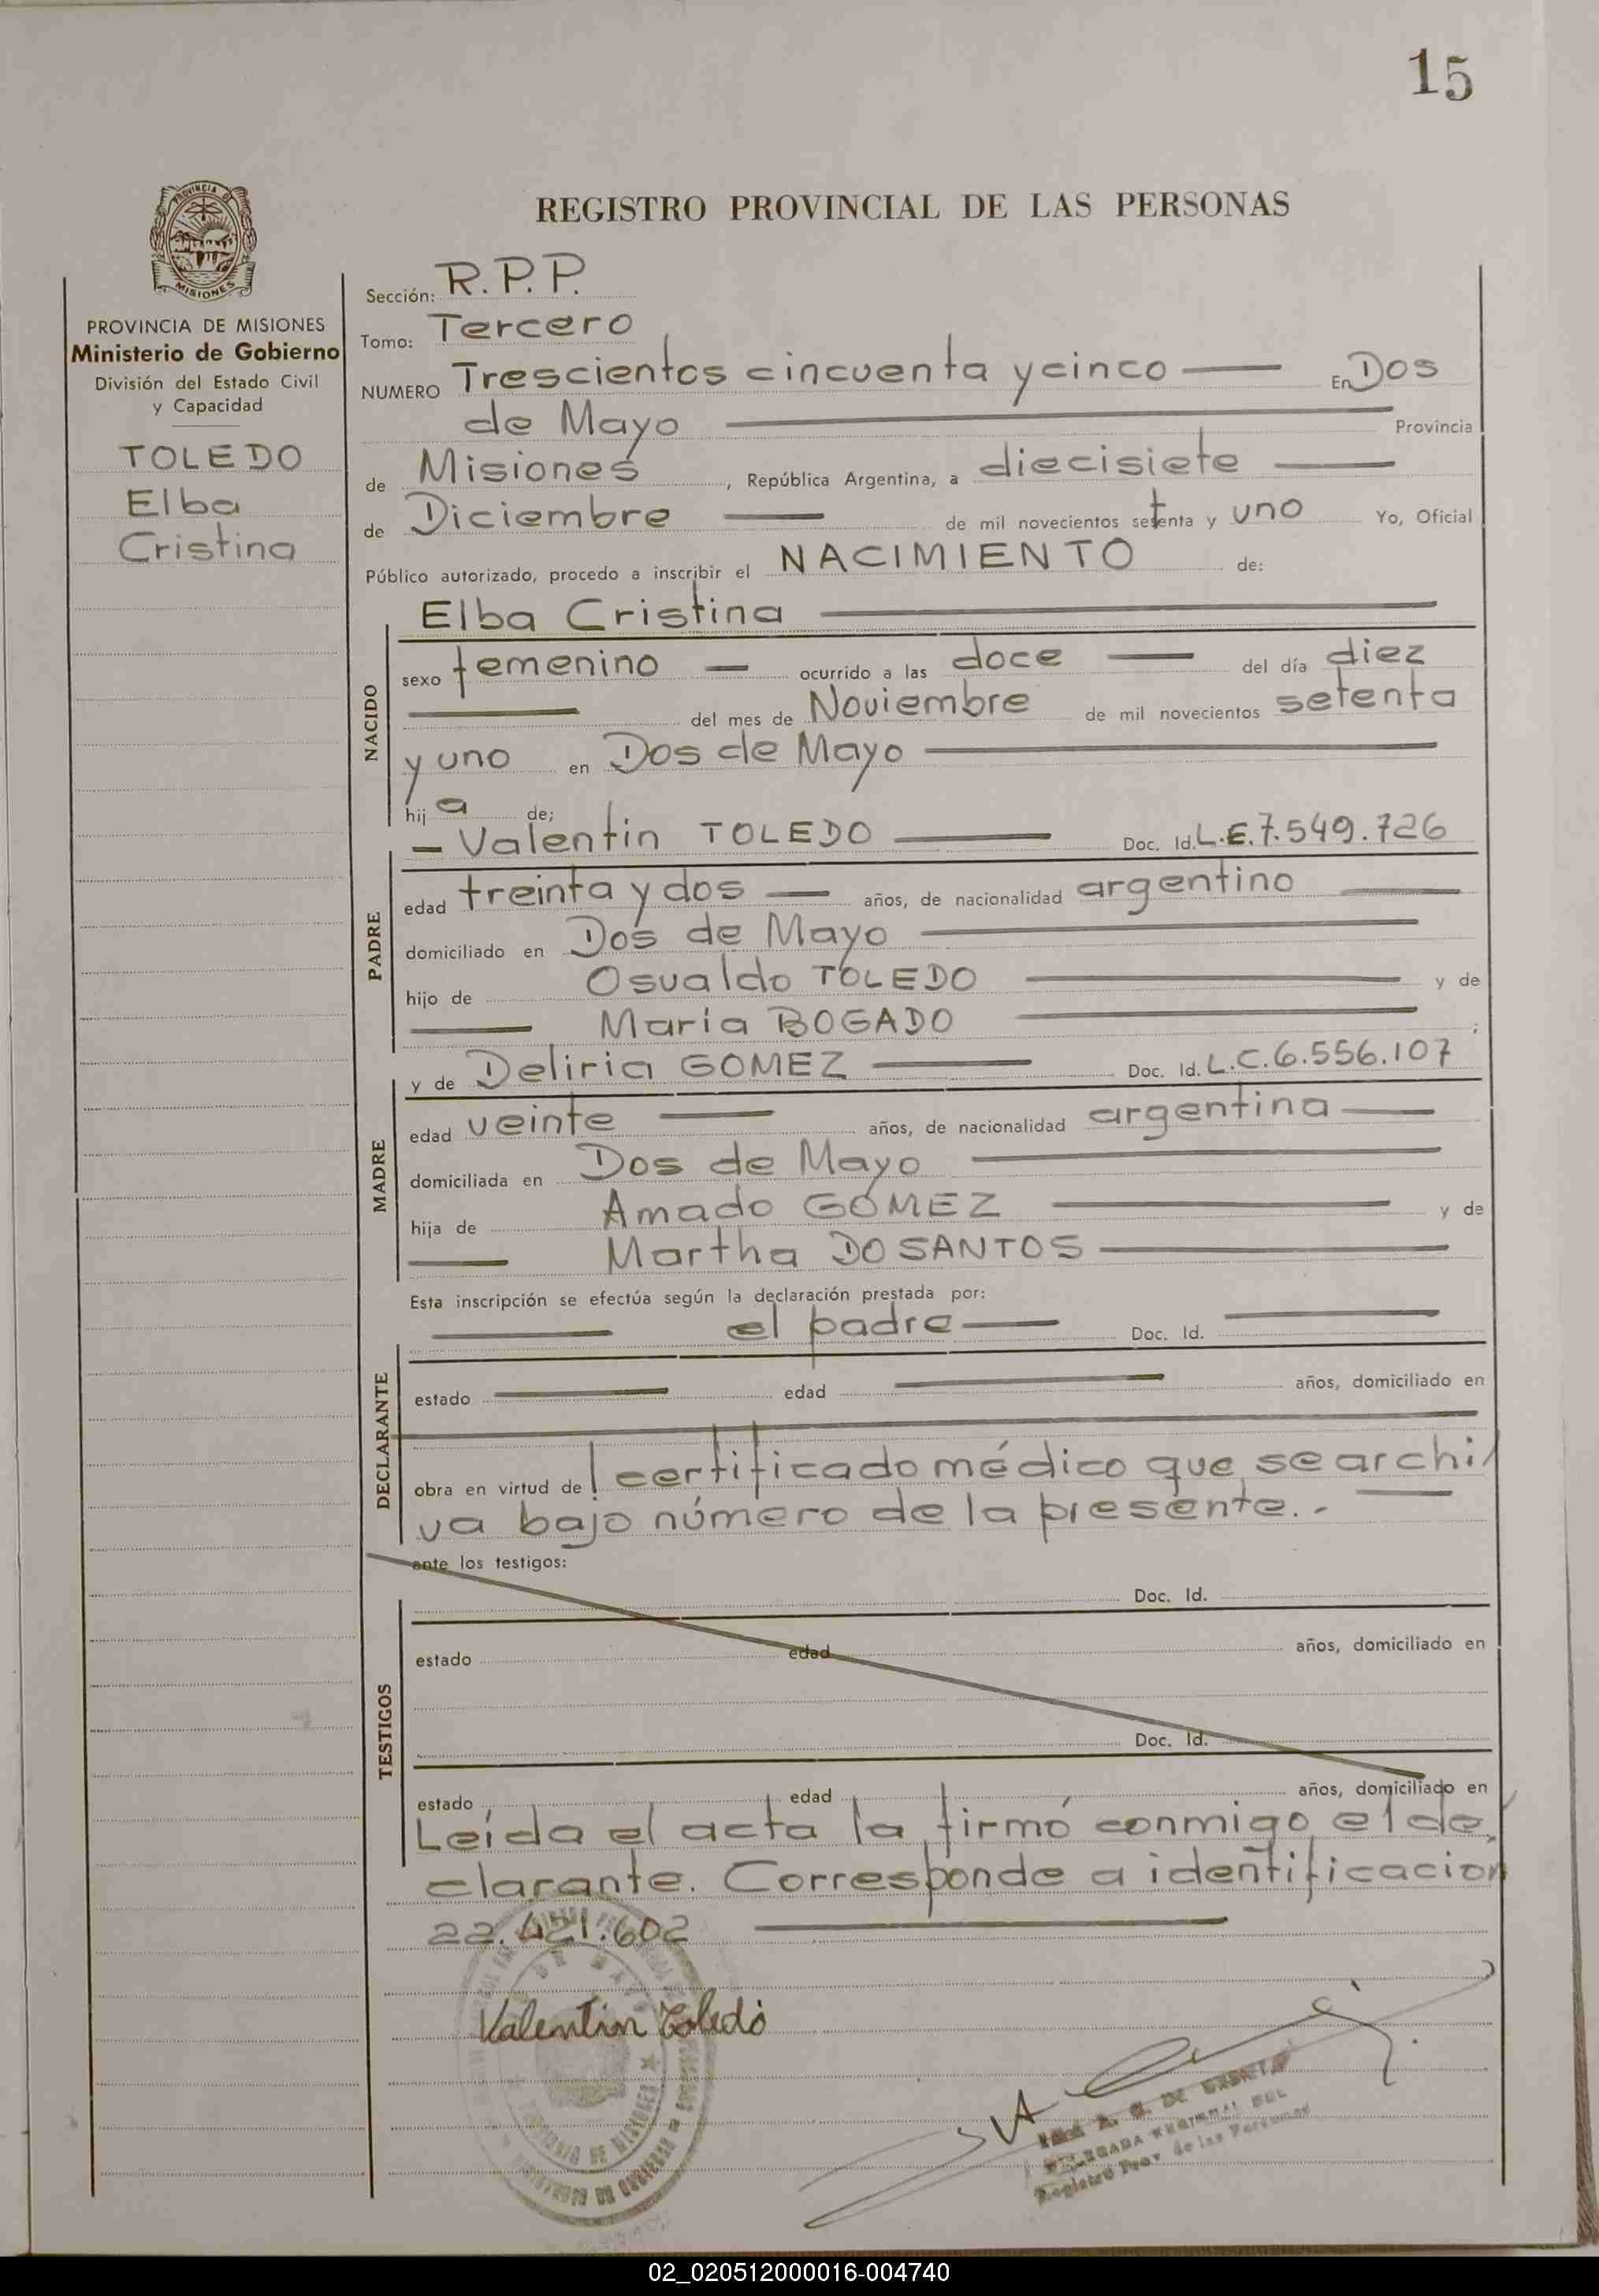 15
REGISTRO PROVINCIAL DE LAS PERSONAS
PROVINCIA DE
MISIONES
PROVINCIA DE MISIONES
Ministerio de Gobierno
División del Estado Civil
y Capacidad
TOLEDO
Elba
Cristina
Sección: R.P.P.
Tomo: Tercero
NUMERO Trescientos cincuenta y cinco En Dos
de Mayo Provincia
de Misiones, República Argentina, a diecisiete
de Diciembre de mil novecientos setenta y uno Yo, Oficial
Público autorizado, procedo a inscribir el NACIMIENTO de:
Elba Cristina
NACIDO
sexo femenino ocurrido a las doce del día diez
del mes de Noviembre de mil novecientos setenta
y uno en Dos de Mayo
hija de;
Valentin TOLEDO Doc. Id. L.E. 7.549.726
PADRE
edad treinta y dos años, de nacionalidad argentino
domiciliado en Dos de Mayo
hijo de Osvaldo TOLEDO y de
María BOGADO ;
y de Deliria GOMEZ Doc. Id. L.C. 6.556.107
MADRE
edad veinte años, de nacionalidad argentina
domiciliada en Dos de Mayo
hija de Amado GOMEZ y de
Martha DO SANTOS
Esta inscripción se efectúa según la declaración prestada por:
el padre Doc. Id.
DECLARANTE
estado edad años, domiciliado en
obra en virtud del certificado médico que se archi
va bajo número de la presente.-
ante los testigos:
Doc. Id.
TESTIGOS
estado edad años, domiciliado en
Doc. Id.
estado edad años, domiciliado en
Leída el acta la firmó conmigo el de
clarante. Corresponde a identificacion
22.421.602
Valentin Toledo
DELEGADA REGIONAL DEL
Registro Prov. de las Personas
02_020512000016-004740